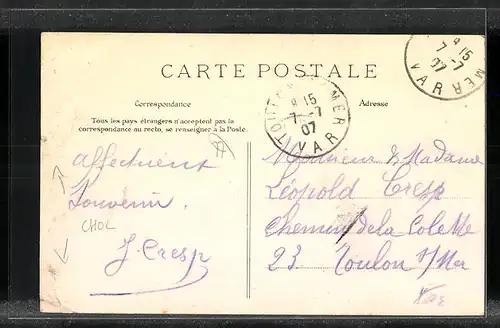 CARTE POSTALE
Correspondance
Tous les pays étrangers n'acceptent pas la
correspondance au recto, se renseigner à la Poste
Adresse
MER
9 15
7 -7
07
VAR
MER
9 15
7 -7
07
VAR
affectueux
Souvenir.
CHOL
J. Cresp
Monsieur & Madame
Léopold Cresp
Chemin de la Colette
23 Toulon s/Mer
Var